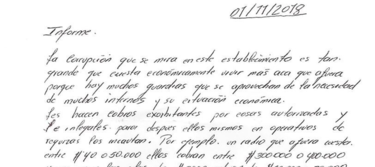 01/11/2018
Informe.
La Corrupción que se mira en este establecimiento es tan
grande que cuesta económicamente vivir mas aca que afuera
porque hay muchos guardias que se aprovechan de la necesidad
de muchos internos y su situación económica.
Les hacen cobros exorbitantes por cosas autorizadas y
e ilegales para despues ellos mismos en operativos de
registros los incautan. Por ejemplo un radio que afuera cuesta
entre $40 a 50.000 ellos cobran entre $300.000 a 400.000